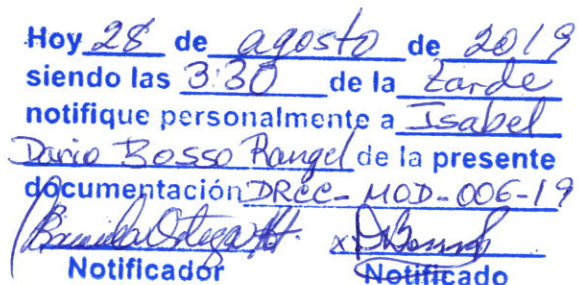 Hoy 28 de agosto de 2019
siendo las 3:30 de la tarde
notifique personalmente a Isabel
Dario Bosso Rangel de la presente
documentación DRCC-MOD-006-19
Notificador Notificado